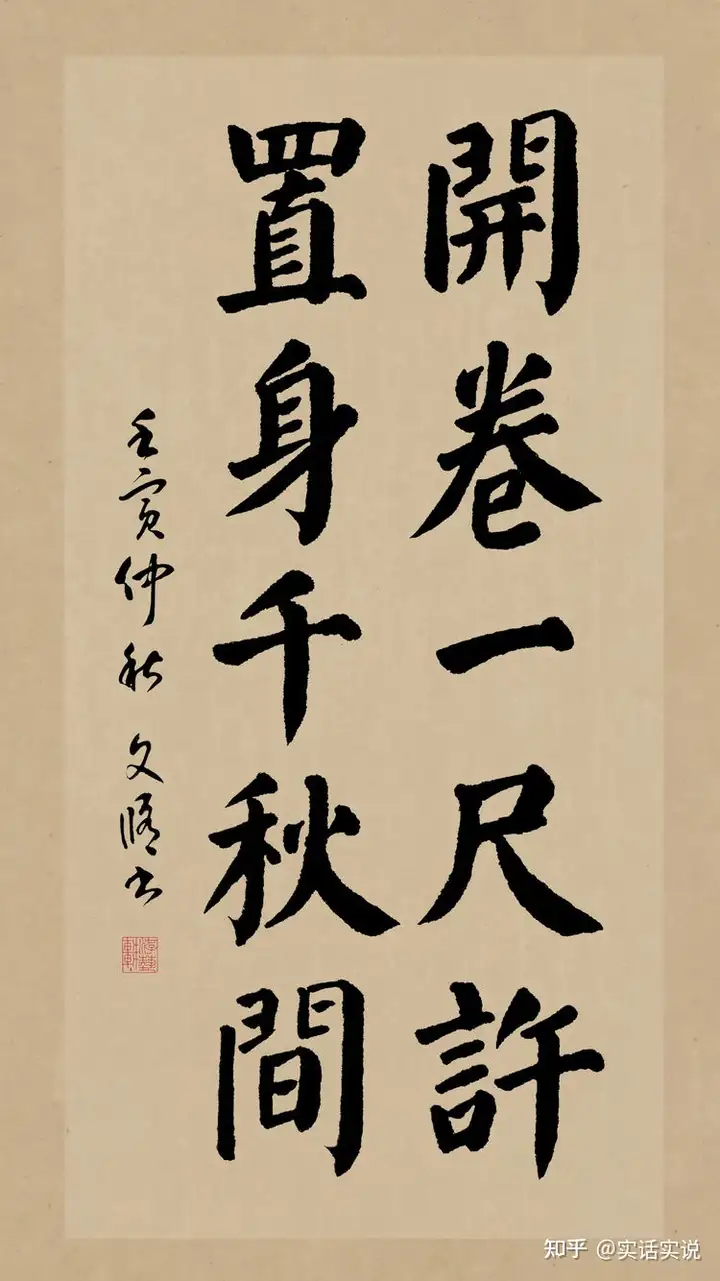 開卷一尺許
置身千秋間
壬寅仲秋 文脩书
知乎 @实话实说